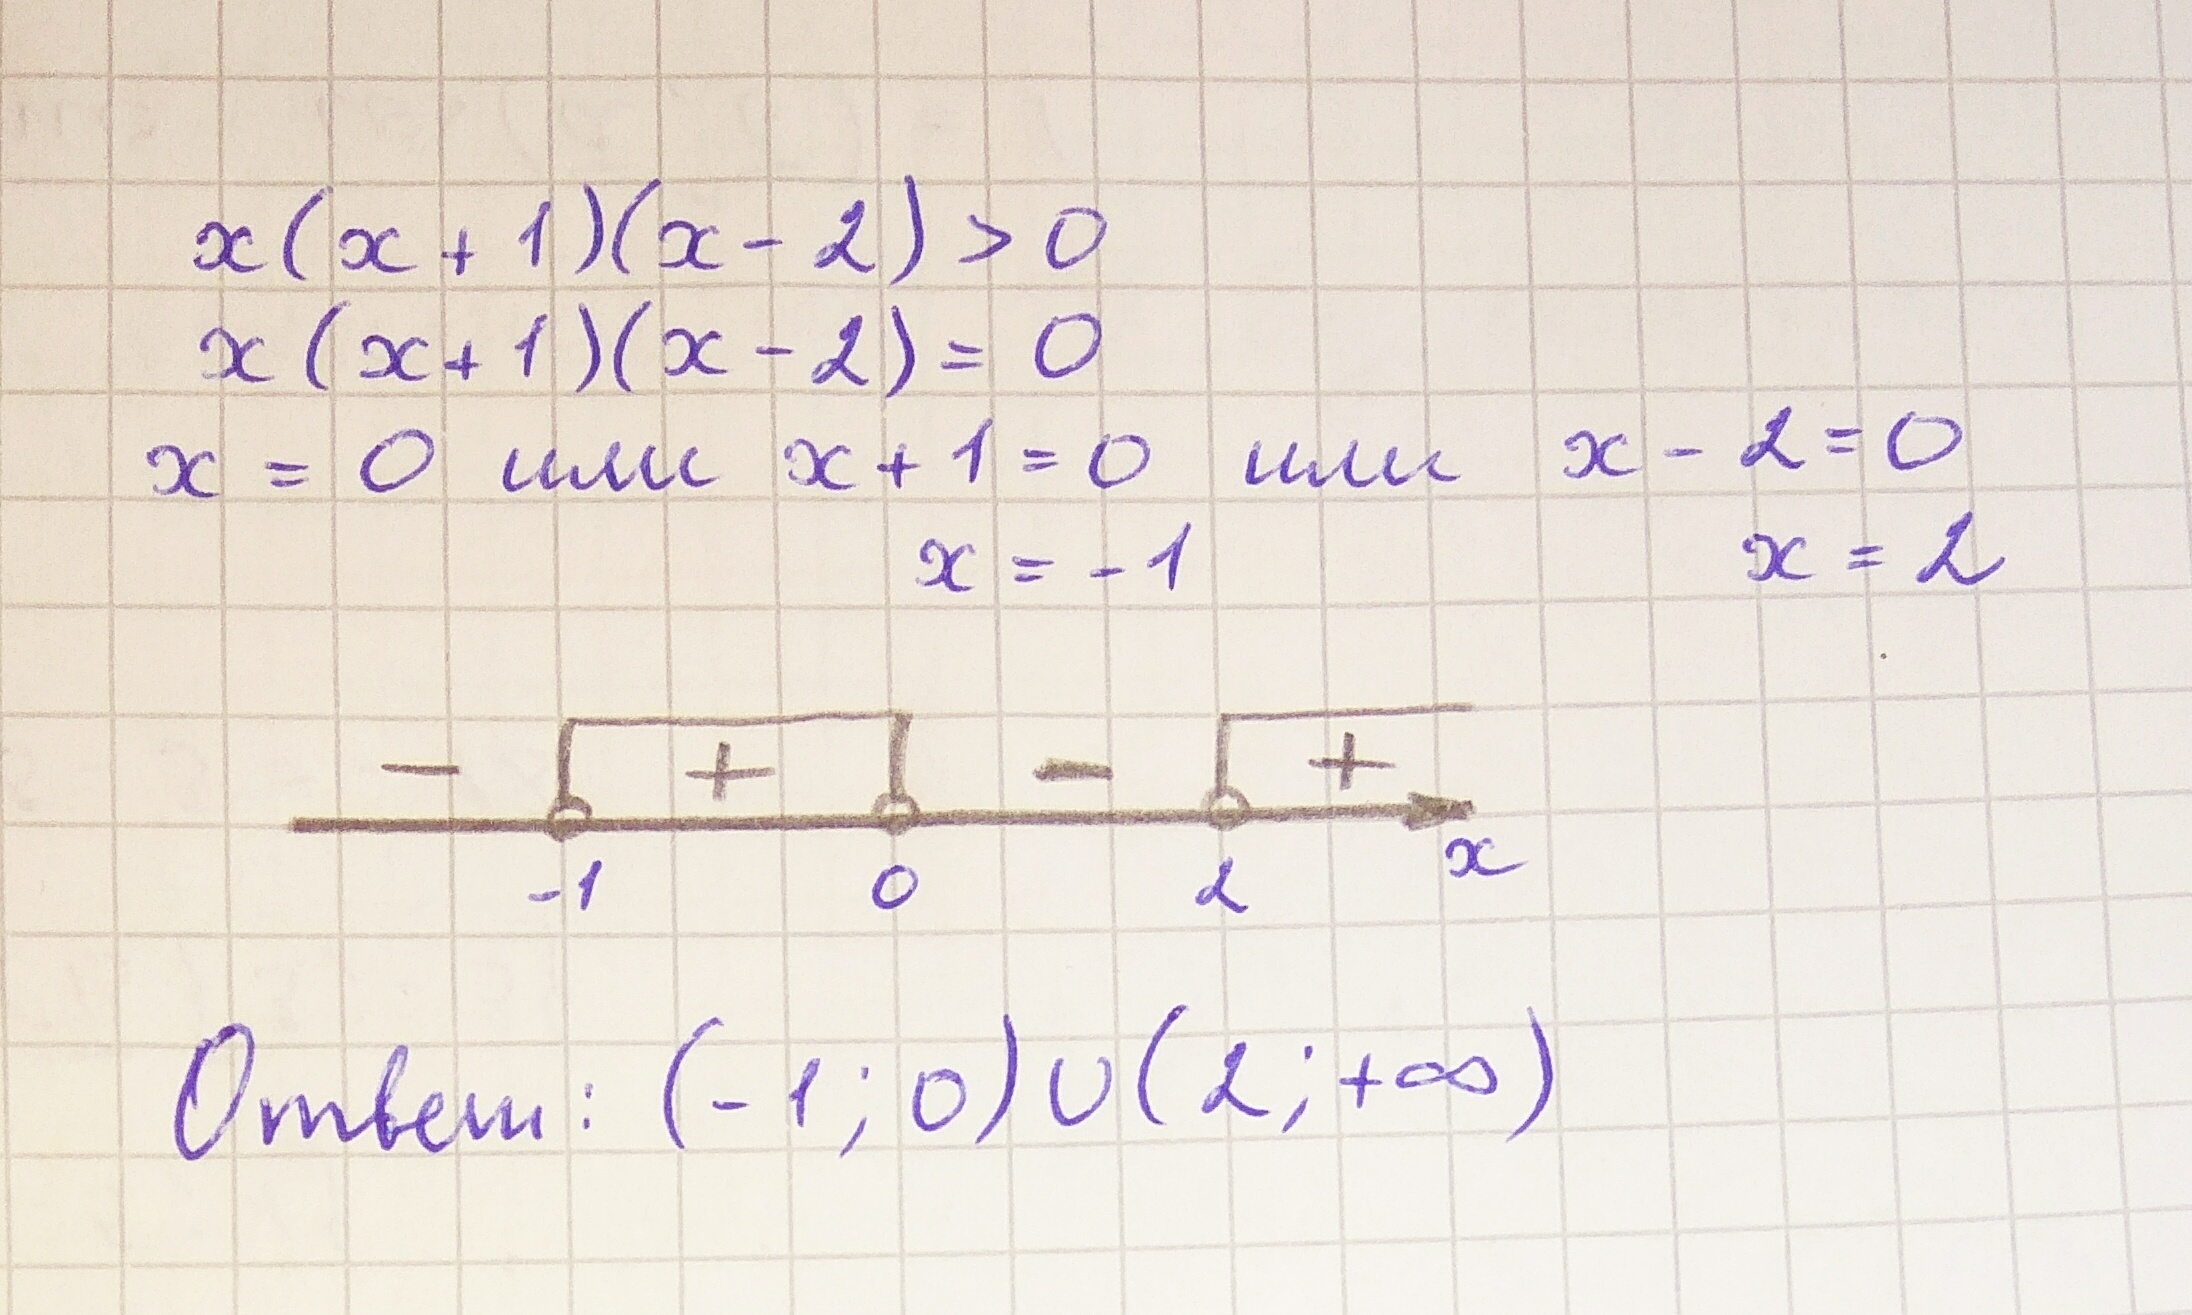 x(x+1)(x-2)>0
x(x+1)(x-2)=0
x=0 или x+1=0 или x-2=0
x=-1 x=2
- + - +
-1 0 2 x
Ответ: (-1;0)∪(2;+∞)